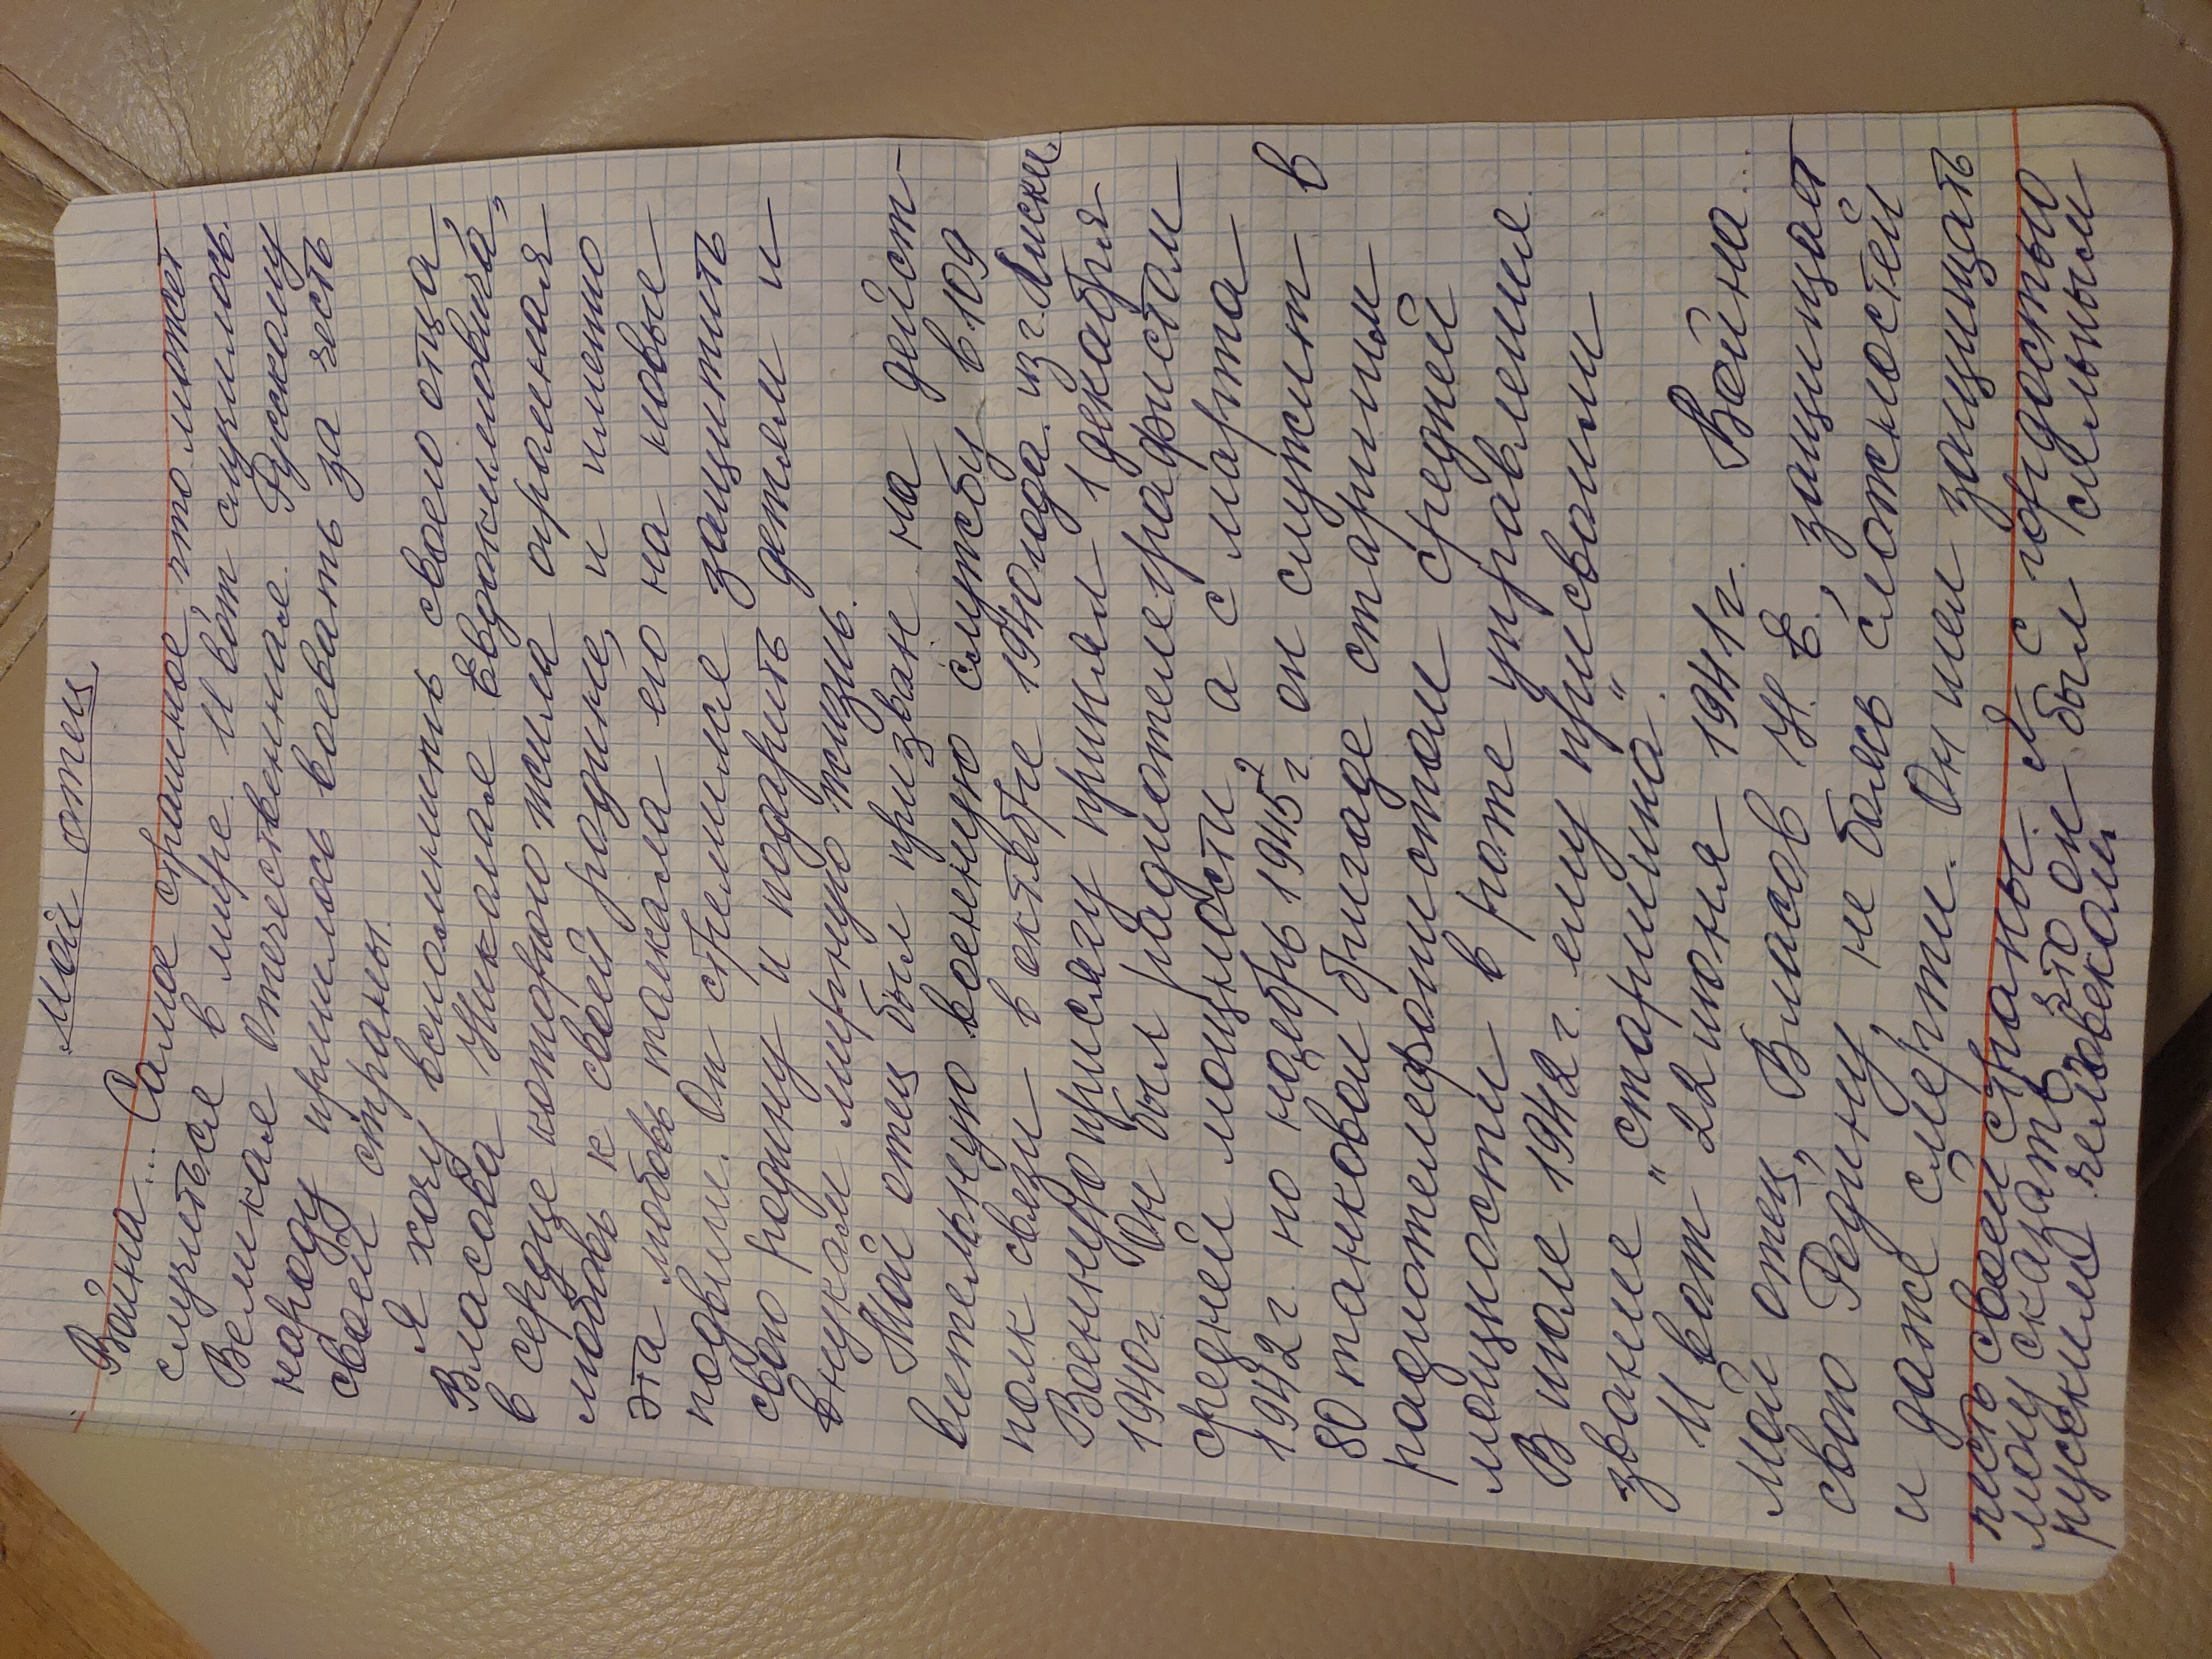 Мой отец
Война... Самое страшное, что может
случиться в мире. И вот случилось.
Великая Отечественная. Русскому
народу пришлось воевать за честь
своей страны.
Я хочу вспомнить своего отца,
Власова Николая Евдокимовича,
в сердце которого жила огромная
любовь к своей родине, и именно
эта любовь толкала его на новые
подвиги. Он стремился защитить
свою родину и подарить детям и
внукам мирную жизнь.
Мой отец был призван на дейст-
вительную военную службу в 109
полк связи в октябре 1940 года из г. Лиски.
Военную присягу принял 1 декабря
1940г. Он был радиотелеграфистом
средней мощности а с марта
1942г. по ноябрь 1945г. он служит в
80 танковой бригаде старшим
радиотелефонистом средней
мощности в роте управления.
В июле 1942г. ему присвоили
звание "старшина".
И вот 22 июня 1941г. Война...
Мой отец, Власов Н. Е., защищает
свою Родину, не боясь сложностей
и даже смерти. Он шел защищать
честь своей страны. Я с гордостью
могу сказать, что он был сильным
русским человеком.